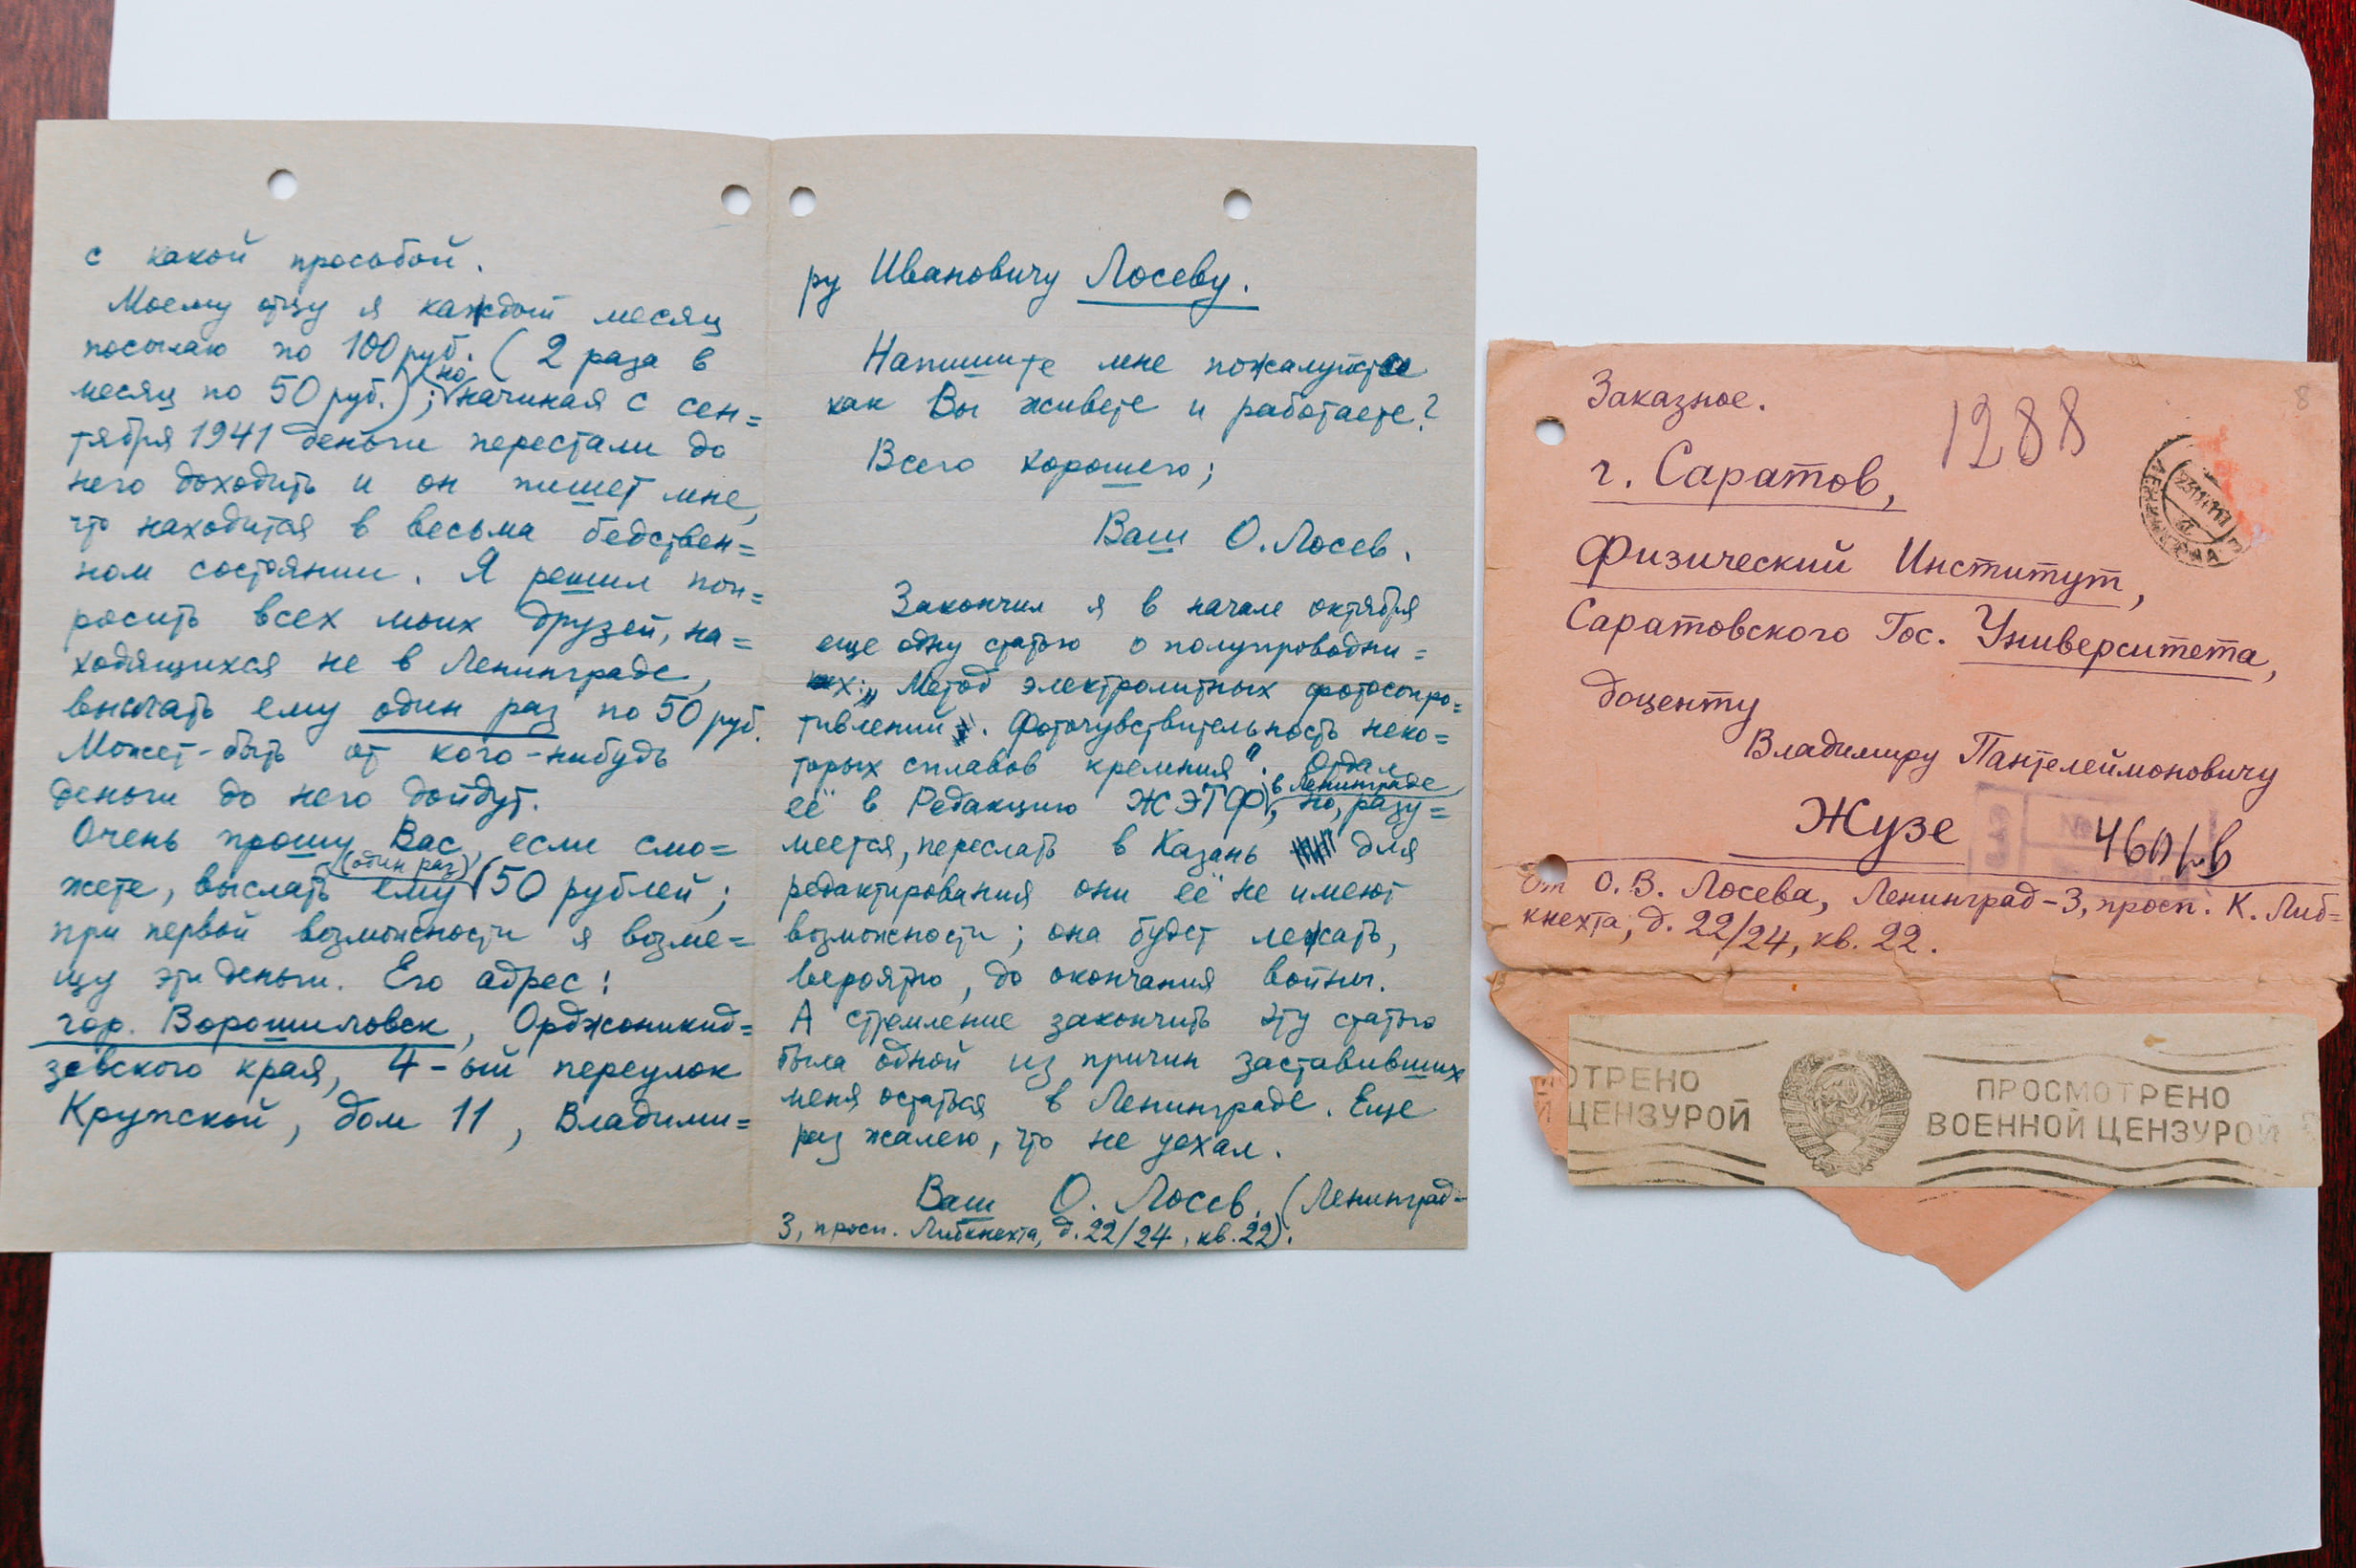 с какой просьбой.
Моему отцу я каждый месяц
посылаю по 100 руб. (2 раза в
месяц по 50 руб.); но начиная с сен=
тября 1941 деньги перестали до
него доходить и он пишет мне,
что находится в весьма бедствен=
ном состоянии. Я решил поп=
росить всех моих друзей, на=
ходящихся не в Ленинграде,
выслать ему один раз по 50 руб.
Может-быть от кого-нибудь
деньги до него дойдут.
Очень прошу Вас, если смо=
жете, выслать ему (один раз) 50 рублей;
при первой возможности я возме=
щу эти деньги. Его адрес:
гор. Ворошиловск, Орджоникид=
зевского края, 4-ый переулок
Кружской, дом 11, Владими=
ру Ивановичу Лосеву.
Напишите мне пожалуйста
как Вы живете и работаете?
Всего хорошего;
Ваш О. Лосев.
Закончил я в начале октября
еще одну статью о полупроводни=
ках: „Метод электролитных фотосопро=
тивлений. Фоточувствительность неко=
торых сплавов кремния". Отдал
её в Редакцию ЖЭТФ в Ленинграде, но, разу=
меется, переслать в Казань для
редактирования они её не имеют
возможности; она будет лежать,
вероятно, до окончания войны.
А стремление закончить эту статью
была одной из причин заставивших
меня остаться в Ленинграде. Еще
раз жалею, что не уехал.
Ваш О. Лосев. (Ленинград-
3, просп. Либкнехта, д. 22/24, кв. 22).
Заказное.
1288
8
г. Саратов,
Физический Институт,
Саратовского Гос. Университета,
доценту
Владимиру Пантелеймоновичу
Жузе
От О. В. Лосева, Ленинград-3, просп. К. Либ=
кнехта, д. 22/24, кв. 22.
ОТРЕНО
Й ЦЕНЗУРОЙ
ПРОСМОТРЕНО
ВОЕННОЙ ЦЕНЗУРОЙ